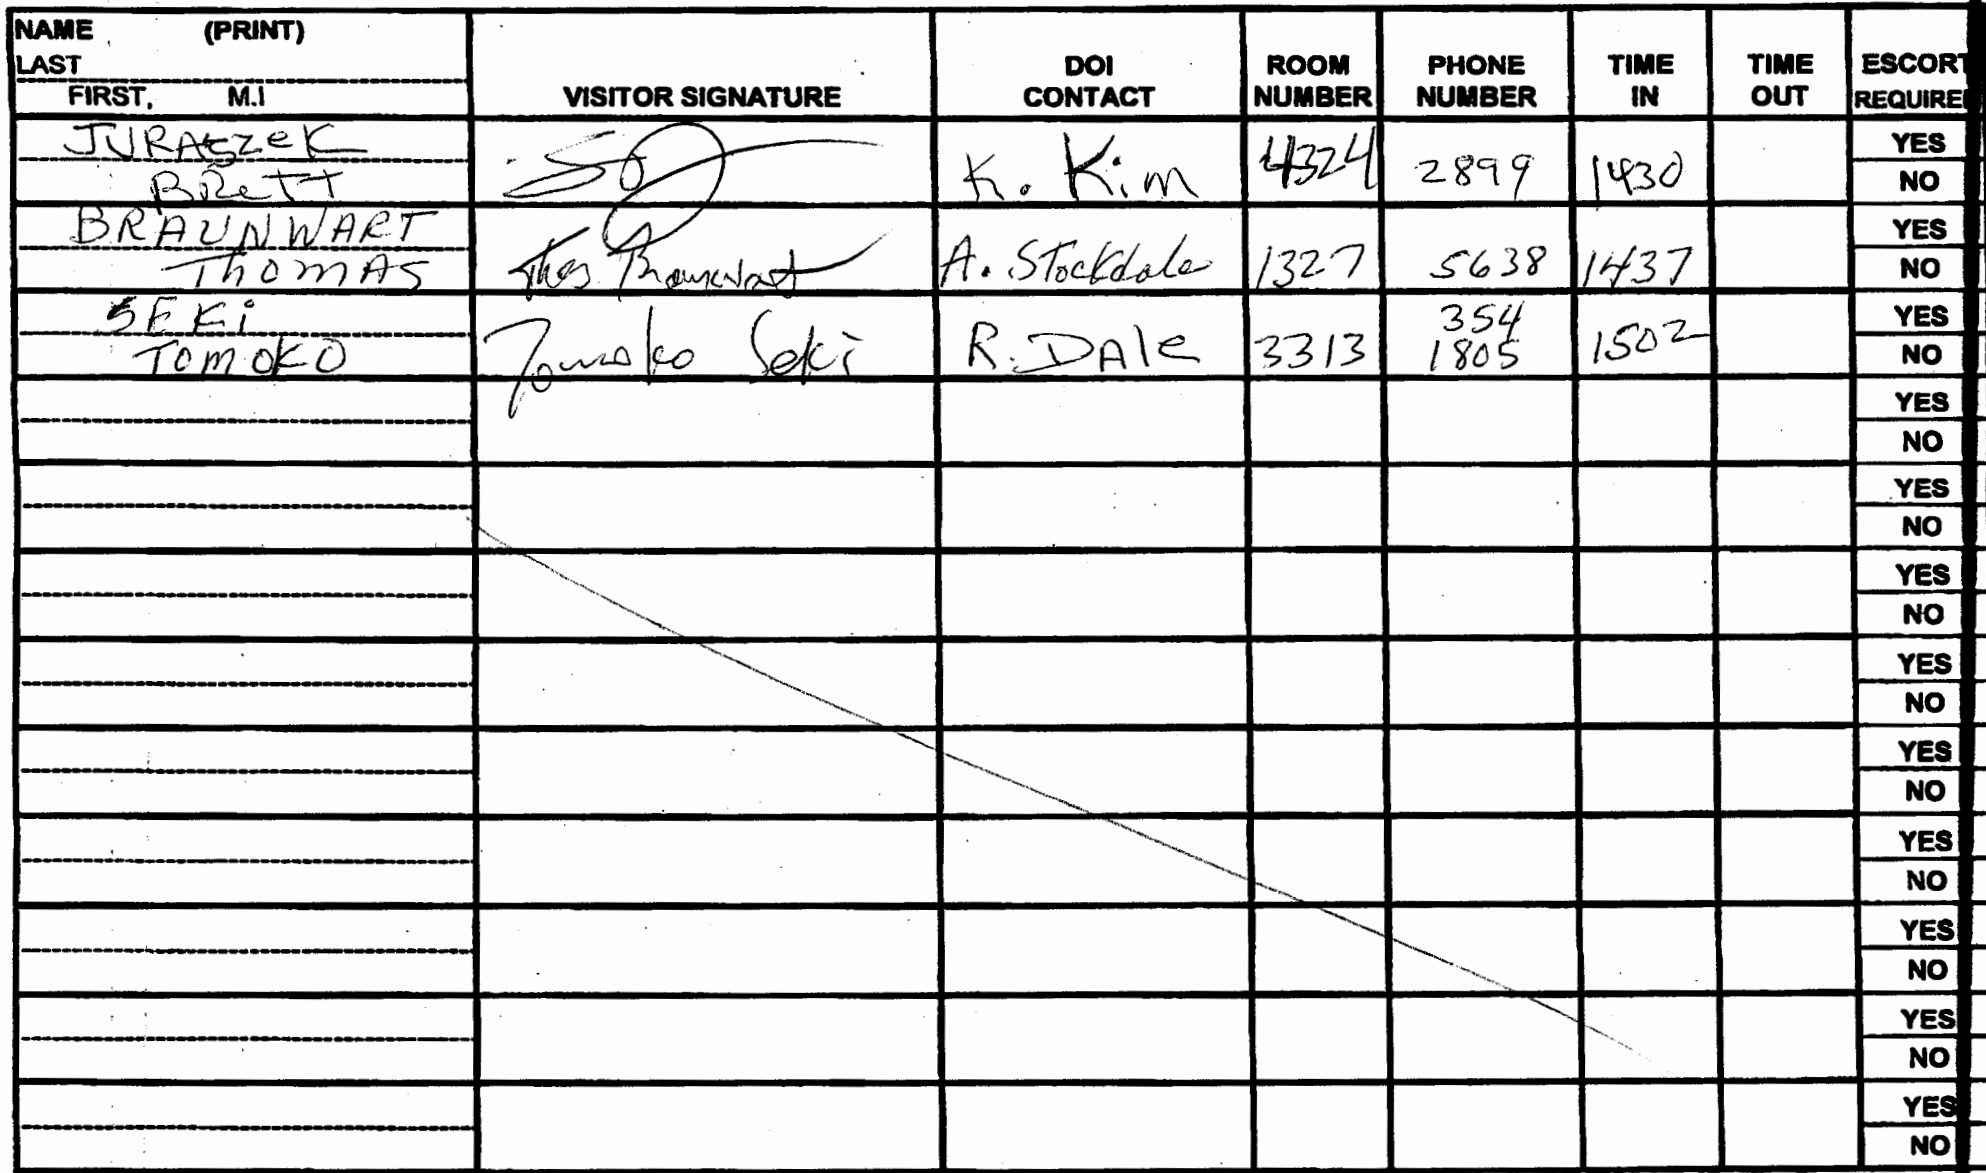 NAME (PRINT)
LAST
FIRST, M.I
VISITOR SIGNATURE
DOI
CONTACT
ROOM
NUMBER
PHONE
NUMBER
TIME
IN
TIME
OUT
ESCORT
REQUIRE
JURASZEK
BRETT
K. Kim
4324
2899
1430
YES
NO
BRAUNWART
THOMAS
Thos Braunwart
A. Stockdale
1327
5638
1437
YES
NO
SEKI
TOMOKO
Tomoko Seki
R. DALE
3313
354
1805
1502
YES
NO
YES
NO
YES
NO
YES
NO
YES
NO
YES
NO
YES
NO
YES
NO
YES
NO
YES
NO